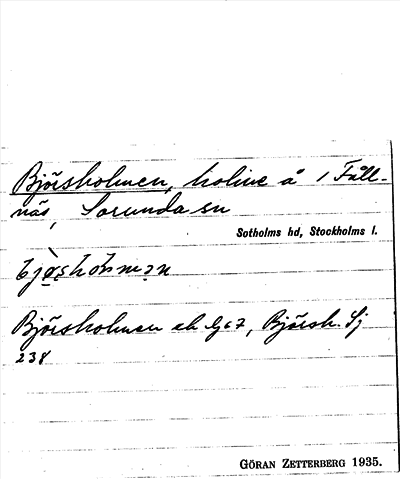 Björsholmen, holme å 1 Fåll-
näs, Sorunda sn
Sotholms hd, Stockholms l.
Björsholmen ek Gc7, Björsh. Sj
238
GÖRAN ZETTERBERG 1935.